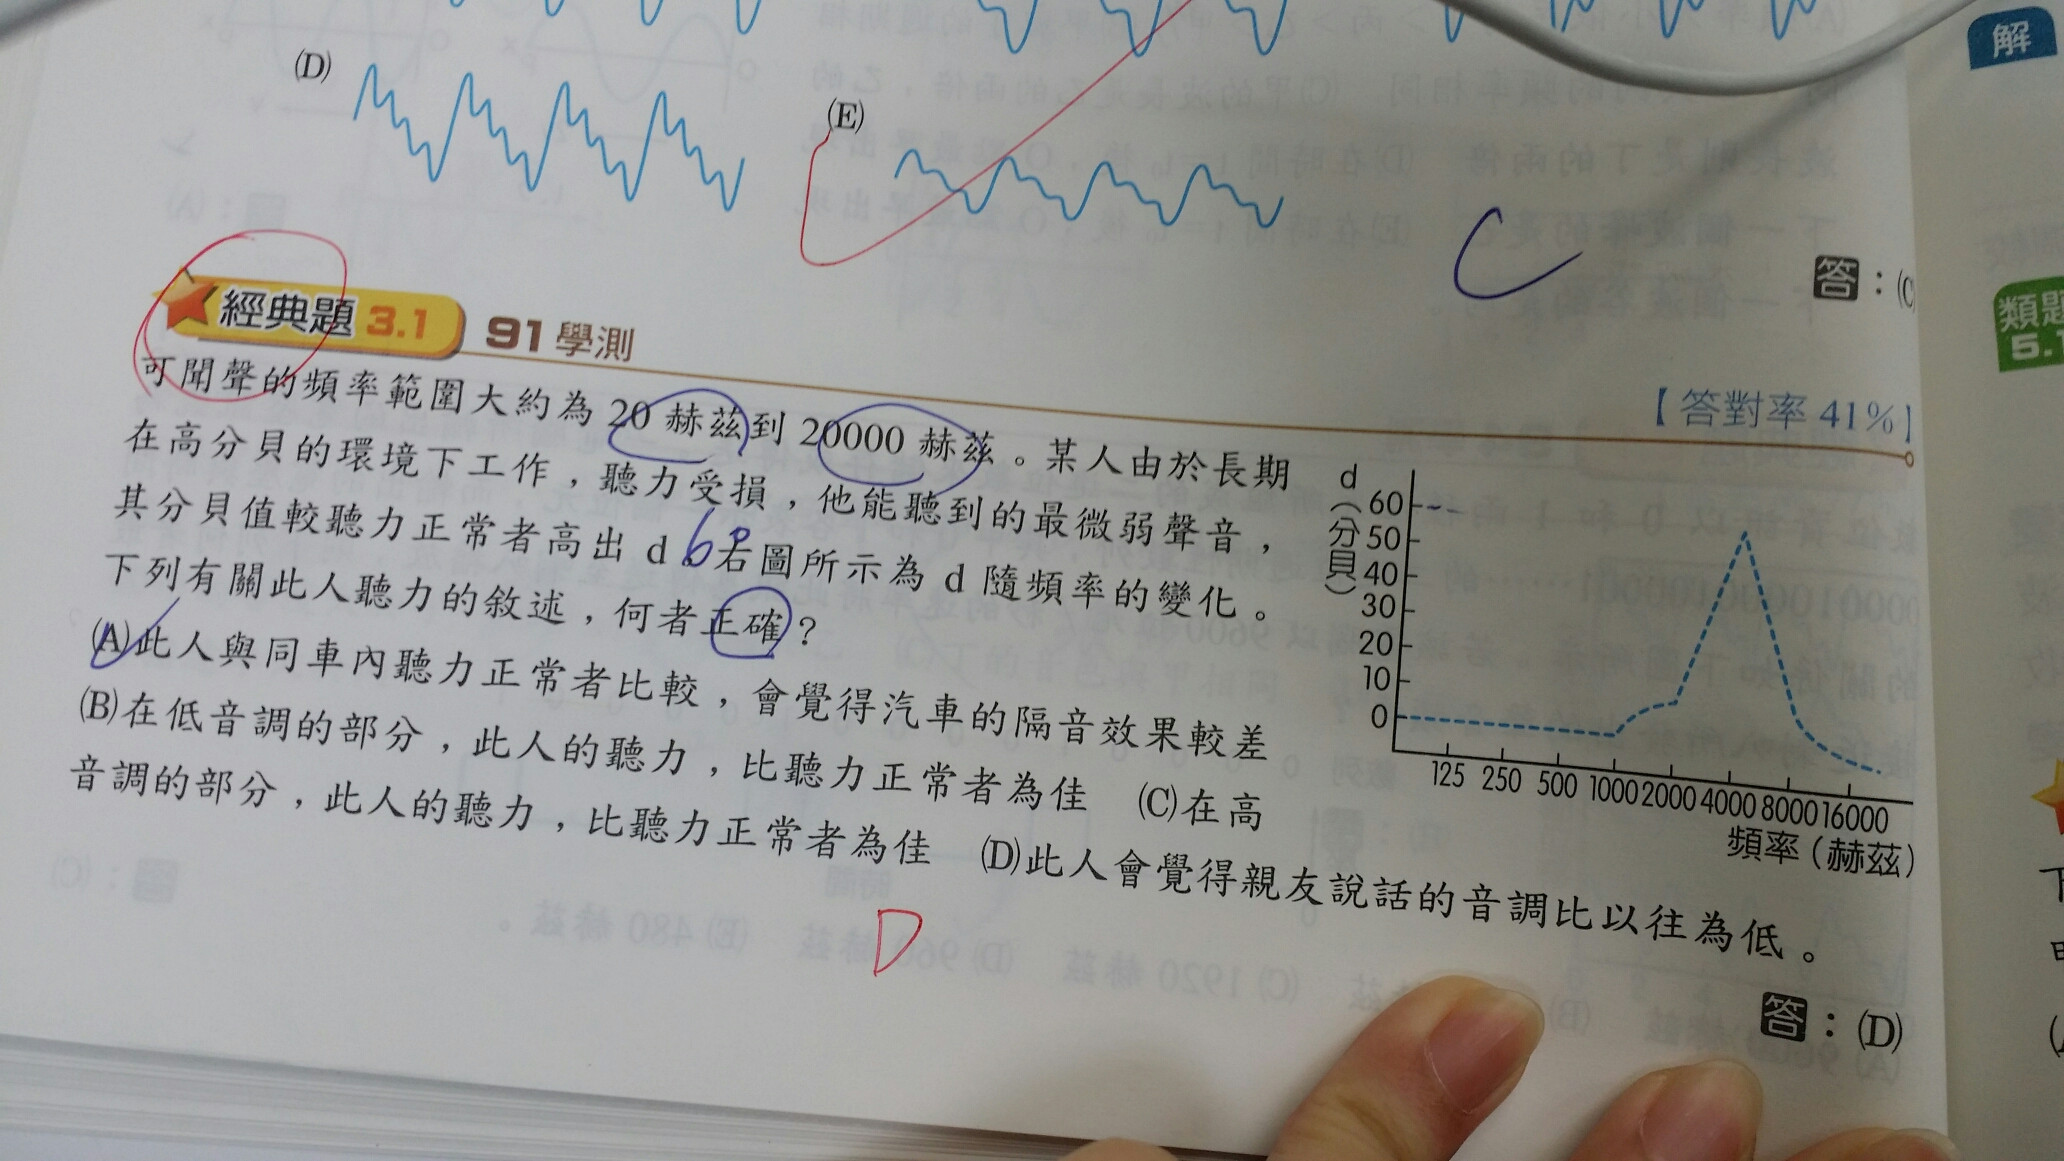 (D)
(E)
解
C
答：(C
經典題 3.1 91 學測
【答對率 41%】
類題
5.1
可聞聲的頻率範圍大約為 20 赫茲到 20000 赫茲。某人由於長期
在高分貝的環境下工作，聽力受損，他能聽到的最微弱聲音，
其分貝值較聽力正常者高出 d。右圖所示為 d 隨頻率的變化。
下列有關此人聽力的敘述，何者正確？
(A)此人與同車內聽力正常者比較，會覺得汽車的隔音效果較差
(B)在低音調的部分，此人的聽力，比聽力正常者為佳 (C)在高
音調的部分，此人的聽力，比聽力正常者為佳 (D)此人會覺得親友說話的音調比以往為低。
d（分貝）
60
50
40
30
20
10
0
125 250 500 1000 2000 4000 8000 16000
頻率（赫茲）
D
答：(D)